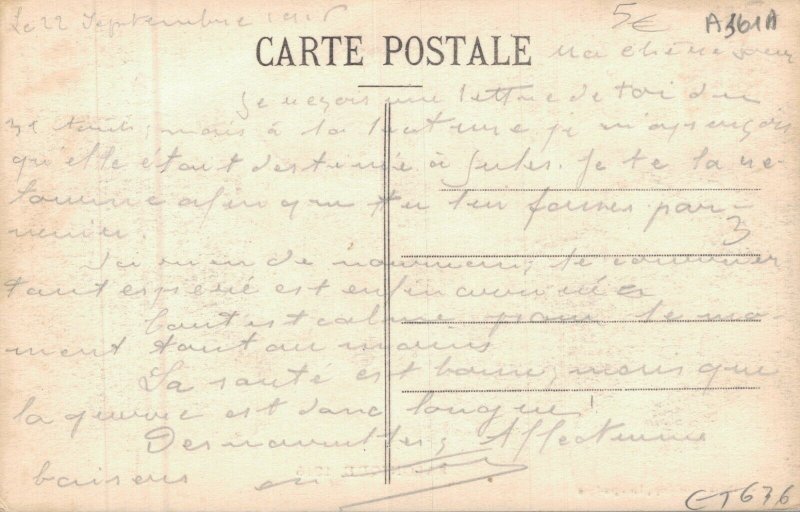 Le 22 Septembre 1916
5€
A361A
CARTE POSTALE
Ma chère soeur
Je reçois une lettre de toi du
31 Août, mais à la lecture je m'aperçois
qu'elle étant destinée à Jules. Je te la re-
tourne afin que tu lui fasses par-
venir.
3
J'ai rien de nouveau, le courrier
tant espéré est enfin
Tout est calme pour le mo-
ment tout au moins
La santé est bonne, mais que
la guerre est donc longue!
Affectueux
baisers
CT676